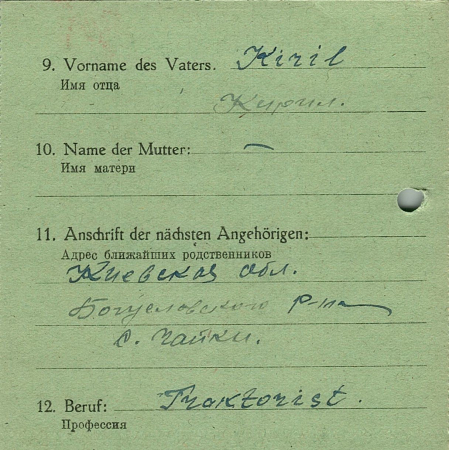 9. Vorname des Vaters. Kiril
Имя отца
Кирил.
10. Name der Mutter: —
Имя матери
11. Anschrift der nächsten Angehörigen:
Адрес ближайших родственников
Киевская обл.
Богуславского р-на
с. Чайки.
12. Beruf: Traktorist.
Профессия